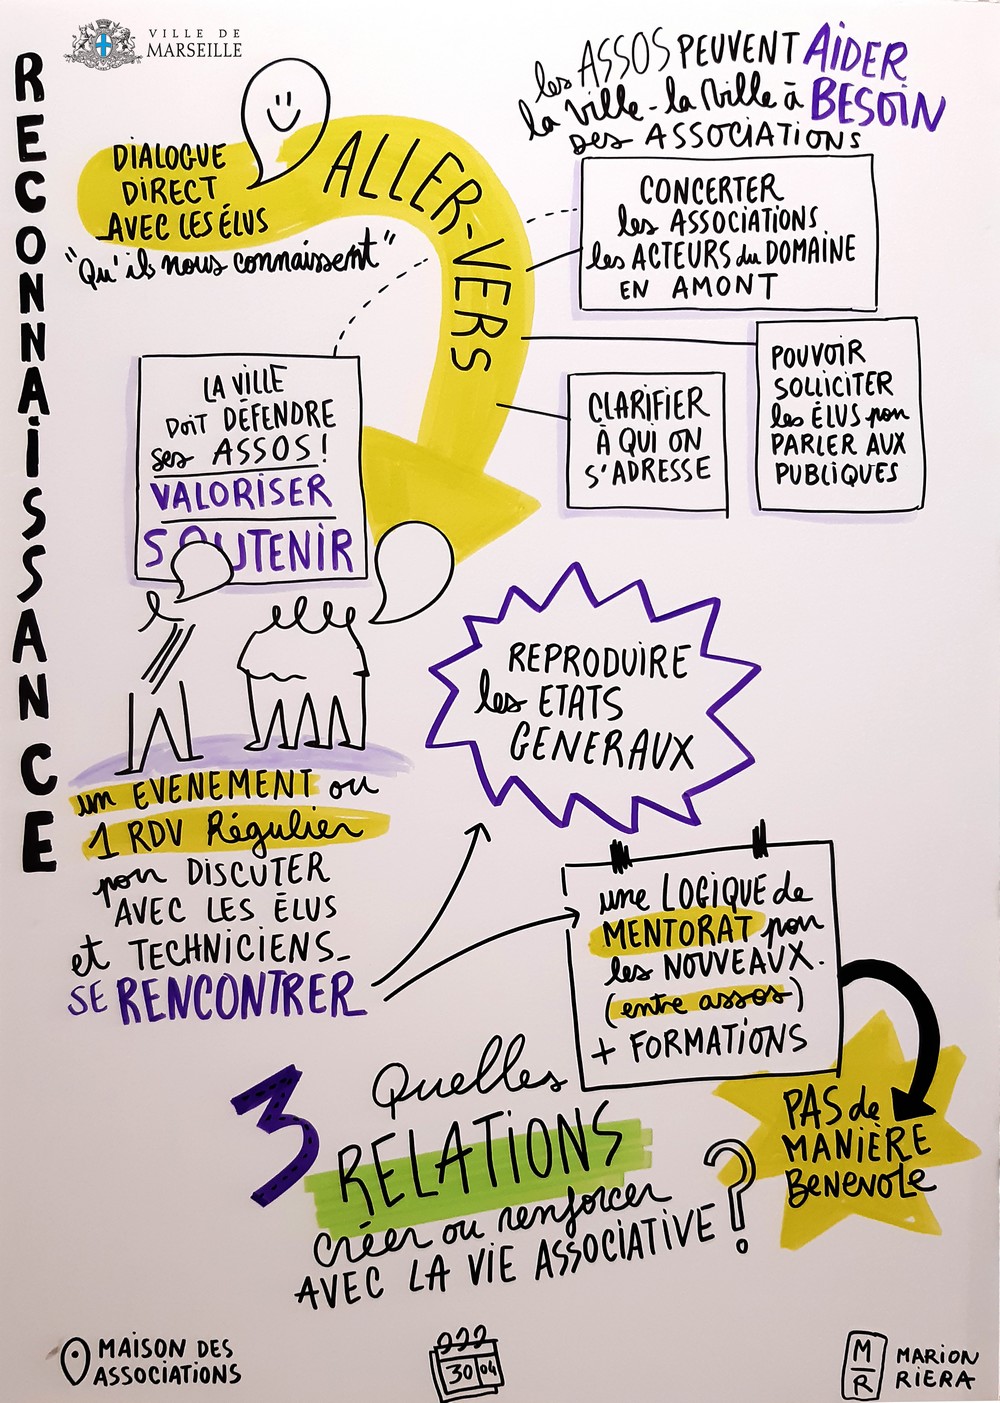 VILLE DE
MARSEILLE
RECONNAISSANCE
les ASSOS PEUVENT AIDER
la ville - la ville à BESOIN
des ASSOCIATIONS
DIALOGUE
DIRECT
AVEC LES ÉLUS
"Qu'ils nous connaissent"
ALLER-VERS
CONCERTER
les ASSOCIATIONS
les ACTEURS du DOMAINE
EN AMONT
POUVOIR
SOLLICITER
les ÉLUS pour
PARLER AUX
PUBLIQUES
CLARIFIER
À QUI ON
S'ADRESSE
LA VILLE
DOIT DÉFENDRE
ses ASSOS !
VALORISER
SOUTENIR
REPRODUIRE
les ETATS
GENERAUX
un EVENEMENT ou
1 RDV Régulier
pour DISCUTER
AVEC LES ÉLUS
et TECHNICIENS_
SE RENCONTRER
une LOGIQUE de
MENTORAT pour
les NOUVEAUX.
(entre assos)
+ FORMATIONS
PAS de
MANIÈRE
BENEVOLE
3 Quelles
RELATIONS
créer ou renforcer
AVEC LA VIE ASSOCIATIVE ?
MAISON DES
ASSOCIATIONS
30 04
M
R
MARION
RIERA